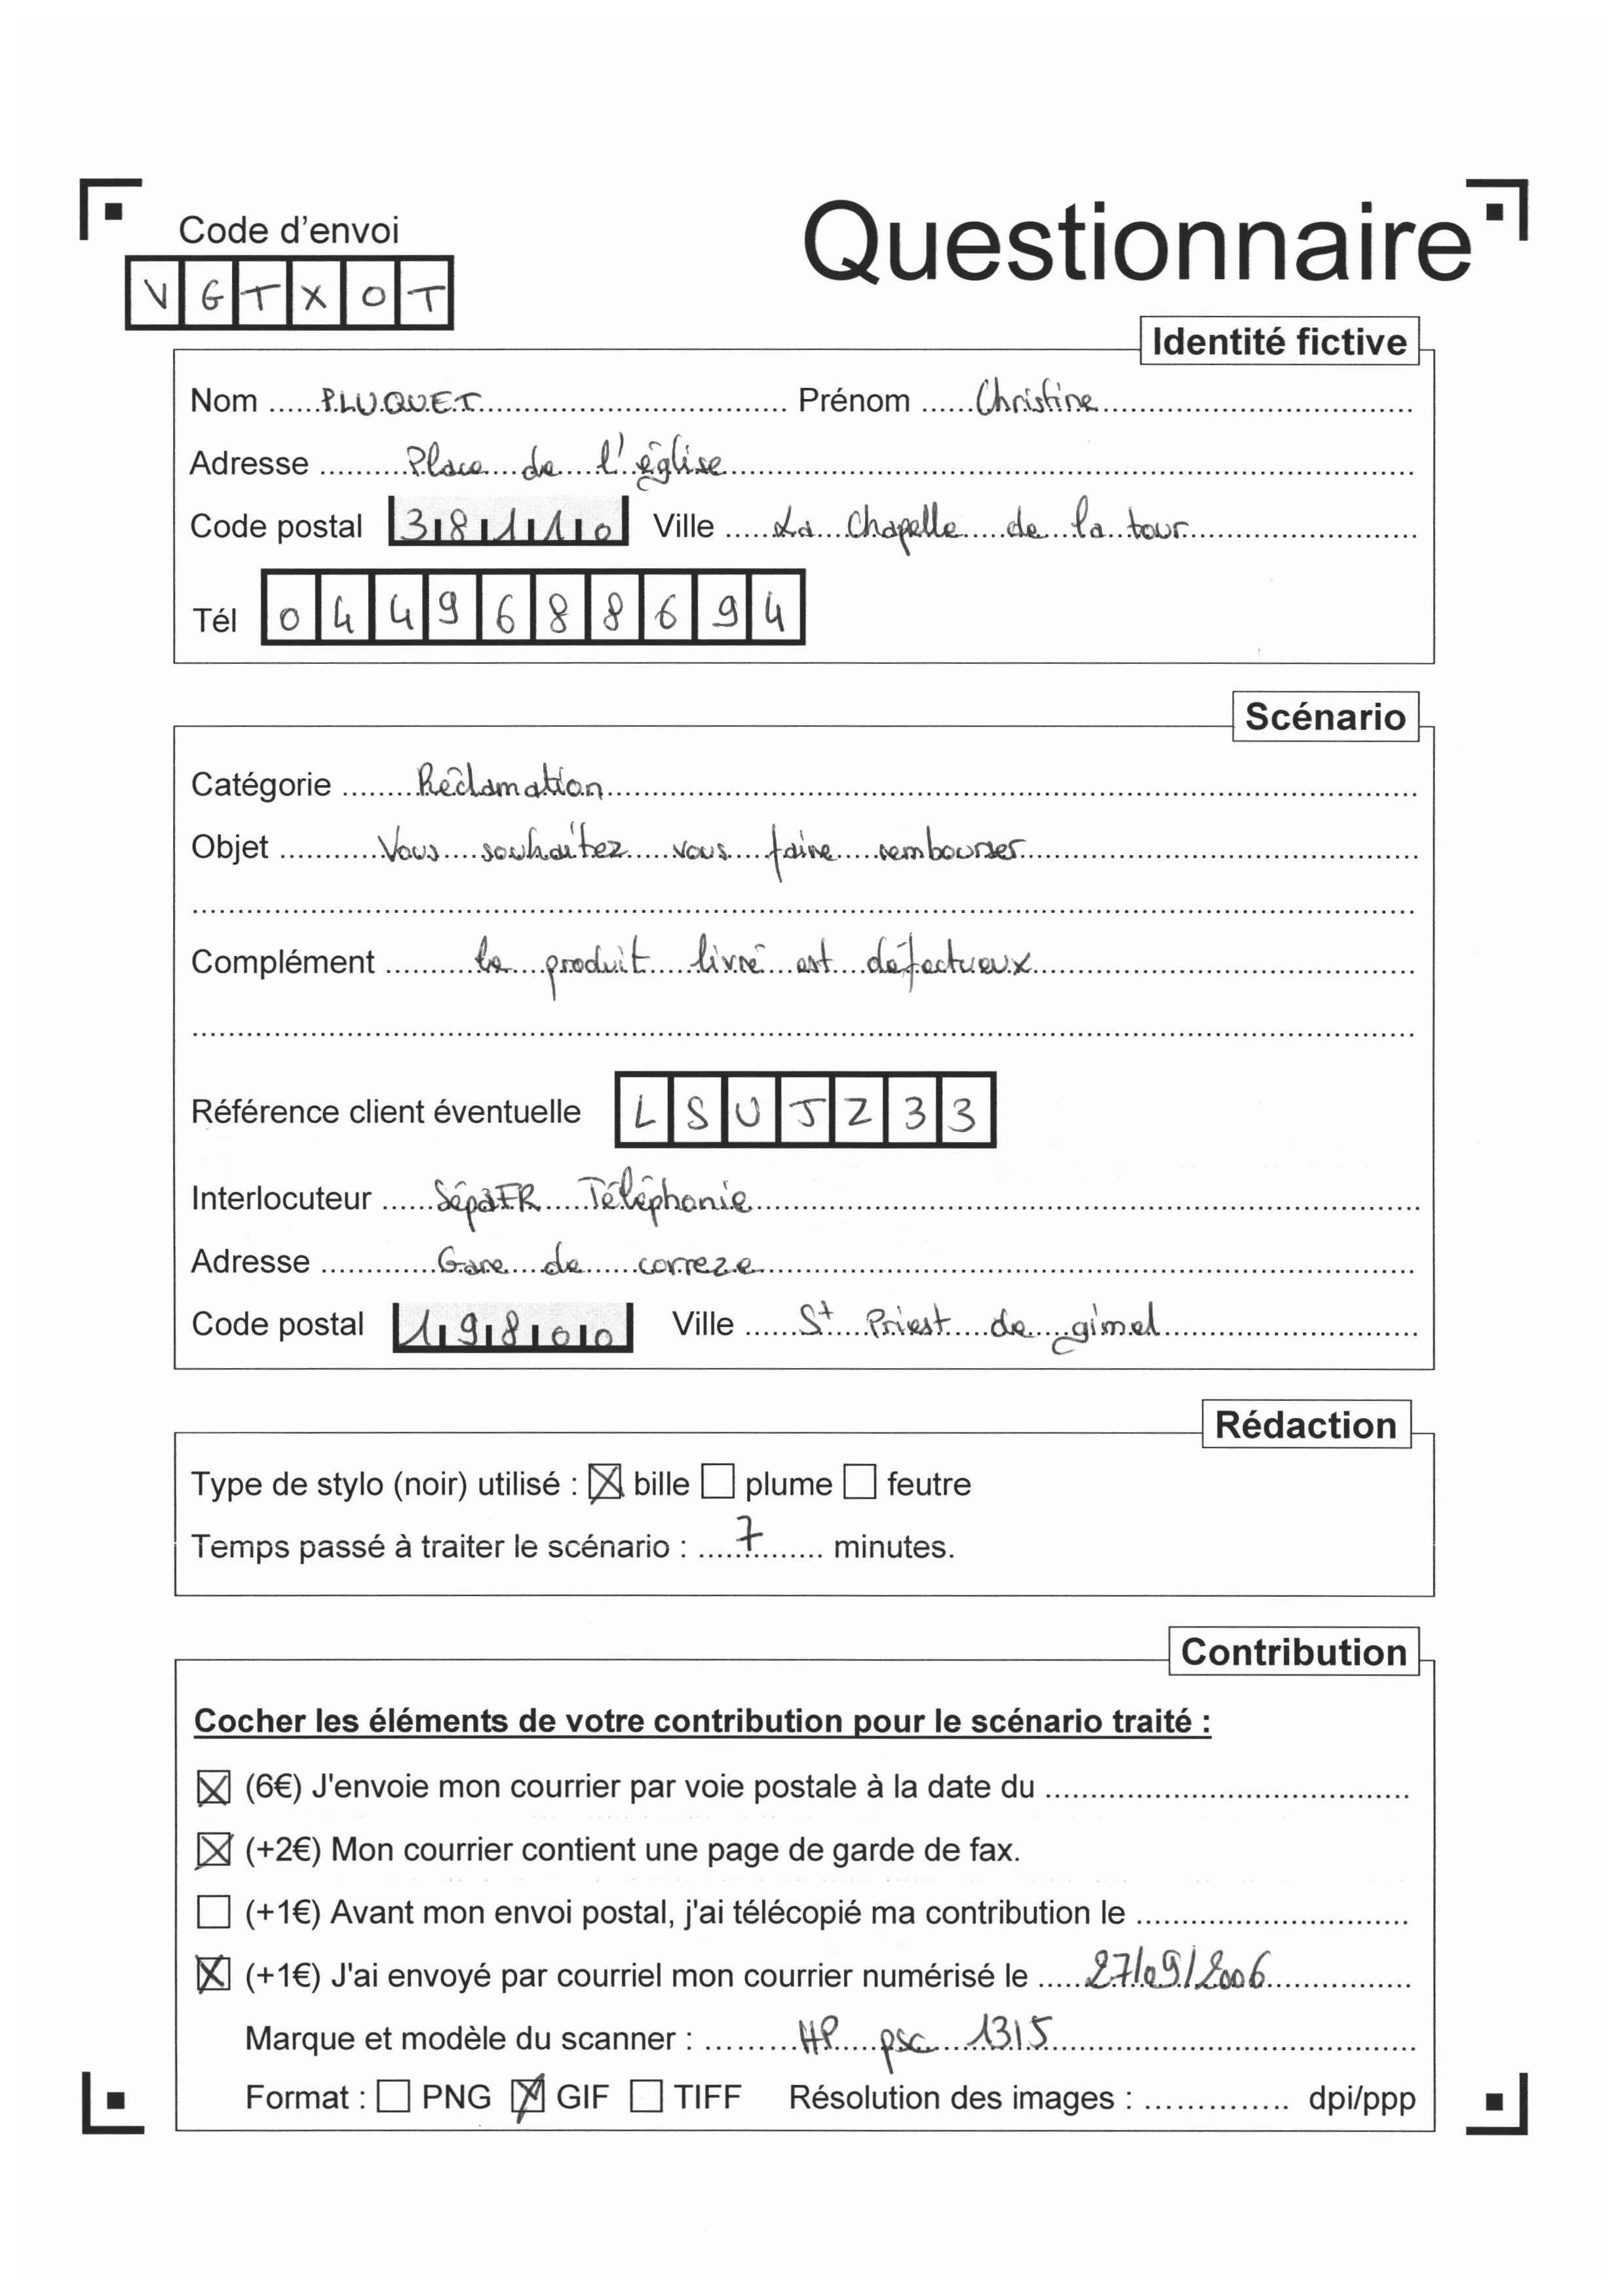 Code d'envoi
Questionnaire
VGTXOT
Identité fictive
Nom PLUQUET Prénom Christine
Adresse Place de l'église
Code postal 38110 Ville La Chapelle de la tour
Tél 0449688694
Scénario
Catégorie Réclamation
Objet Vous souhaitez vous faire rembourser
Complément le produit livré est défectueux
Référence client éventuelle LSUJZ33
Interlocuteur SépaFR Téléphonie
Adresse Gare de correze
Code postal 19800 Ville St Priest de gimel
Rédaction
Type de stylo (noir) utilisé : ☒ bille ☐ plume ☐ feutre
Temps passé à traiter le scénario : 7 minutes.
Contribution
Cocher les éléments de votre contribution pour le scénario traité :
☒ (6€) J'envoie mon courrier par voie postale à la date du
☒ (+2€) Mon courrier contient une page de garde de fax.
☐ (+1€) Avant mon envoi postal, j'ai télécopié ma contribution le
☒ (+1€) J'ai envoyé par courriel mon courrier numérisé le 27/09/2006
Marque et modèle du scanner : HP psc 1315
Format : ☐ PNG ☒ GIF ☐ TIFF Résolution des images : dpi/ppp